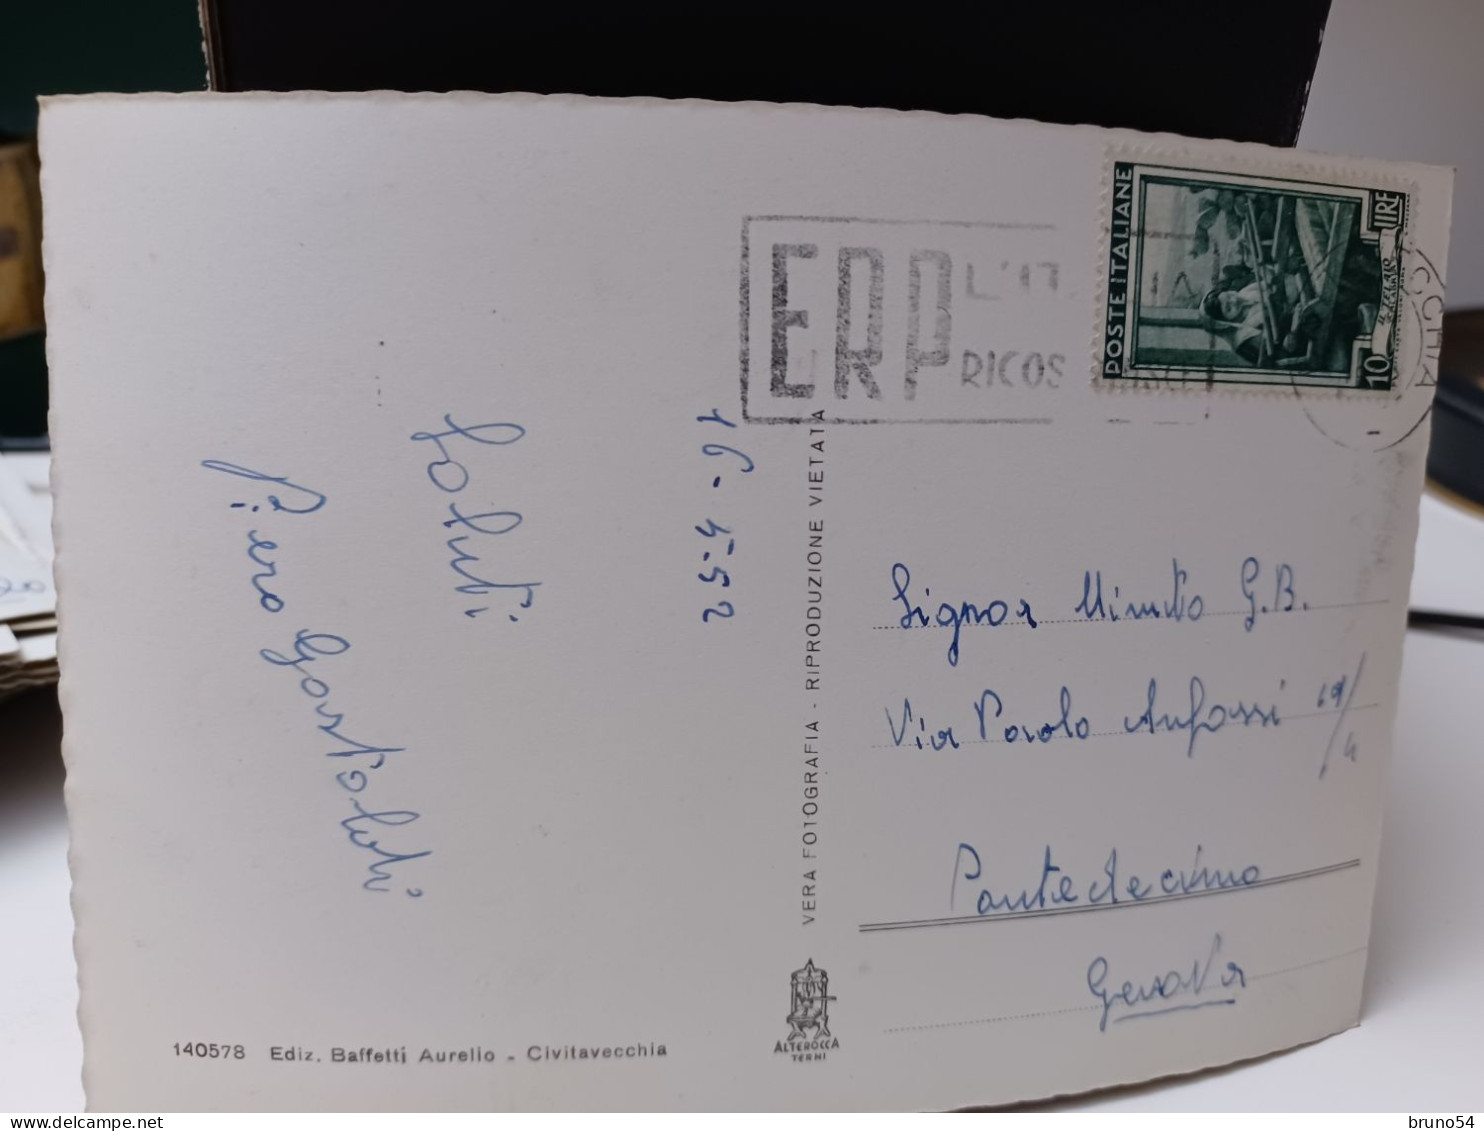 POSTE ITALIANE
10 LIRE
ERP L'IT
RICOS
16-4-52
Saluti
Piero Gastaldi
VERA FOTOGRAFIA - RIPRODUZIONE VIETATA
Signor Minuto G.B.
Via Paolo Anfossi
Pontedecimo
Genova
ALTEROCCA
TERNI
140578 Ediz. Baffetti Aurelio - Civitavecchia
bruno54
delcampe.net